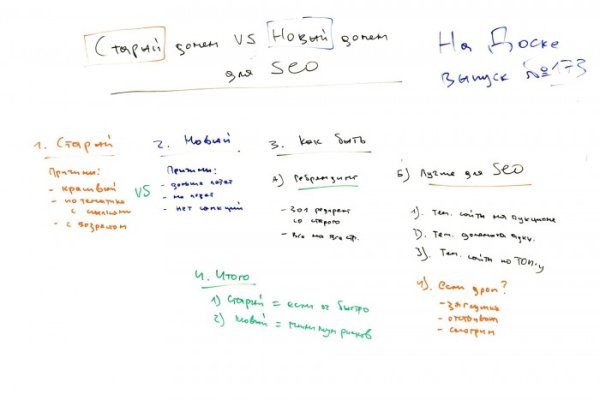 Старый домен VS Новый домен
для SEO
На Доске
выпуск №173
1. Старый
Причины:
- красивый
- по тематике
с ссылками
- с возрастом
VS
2. Новый
Причины:
- дольше
- не
- нет санкций
3. Как быть
А) Ребрендинг
- 301 редирект
со старого
- Все на все стр.
Б) Лучше для SEO
1). Тем. сайты на аукционе
2). Тем. домены аукц.
3). Тем. сайты по ТОП-у
4). Если дроп?
- заглушка
- отстаиваем
- смотрим
4. Итого
1) Старый = если ок быстро
2) Новый = минимум рисков